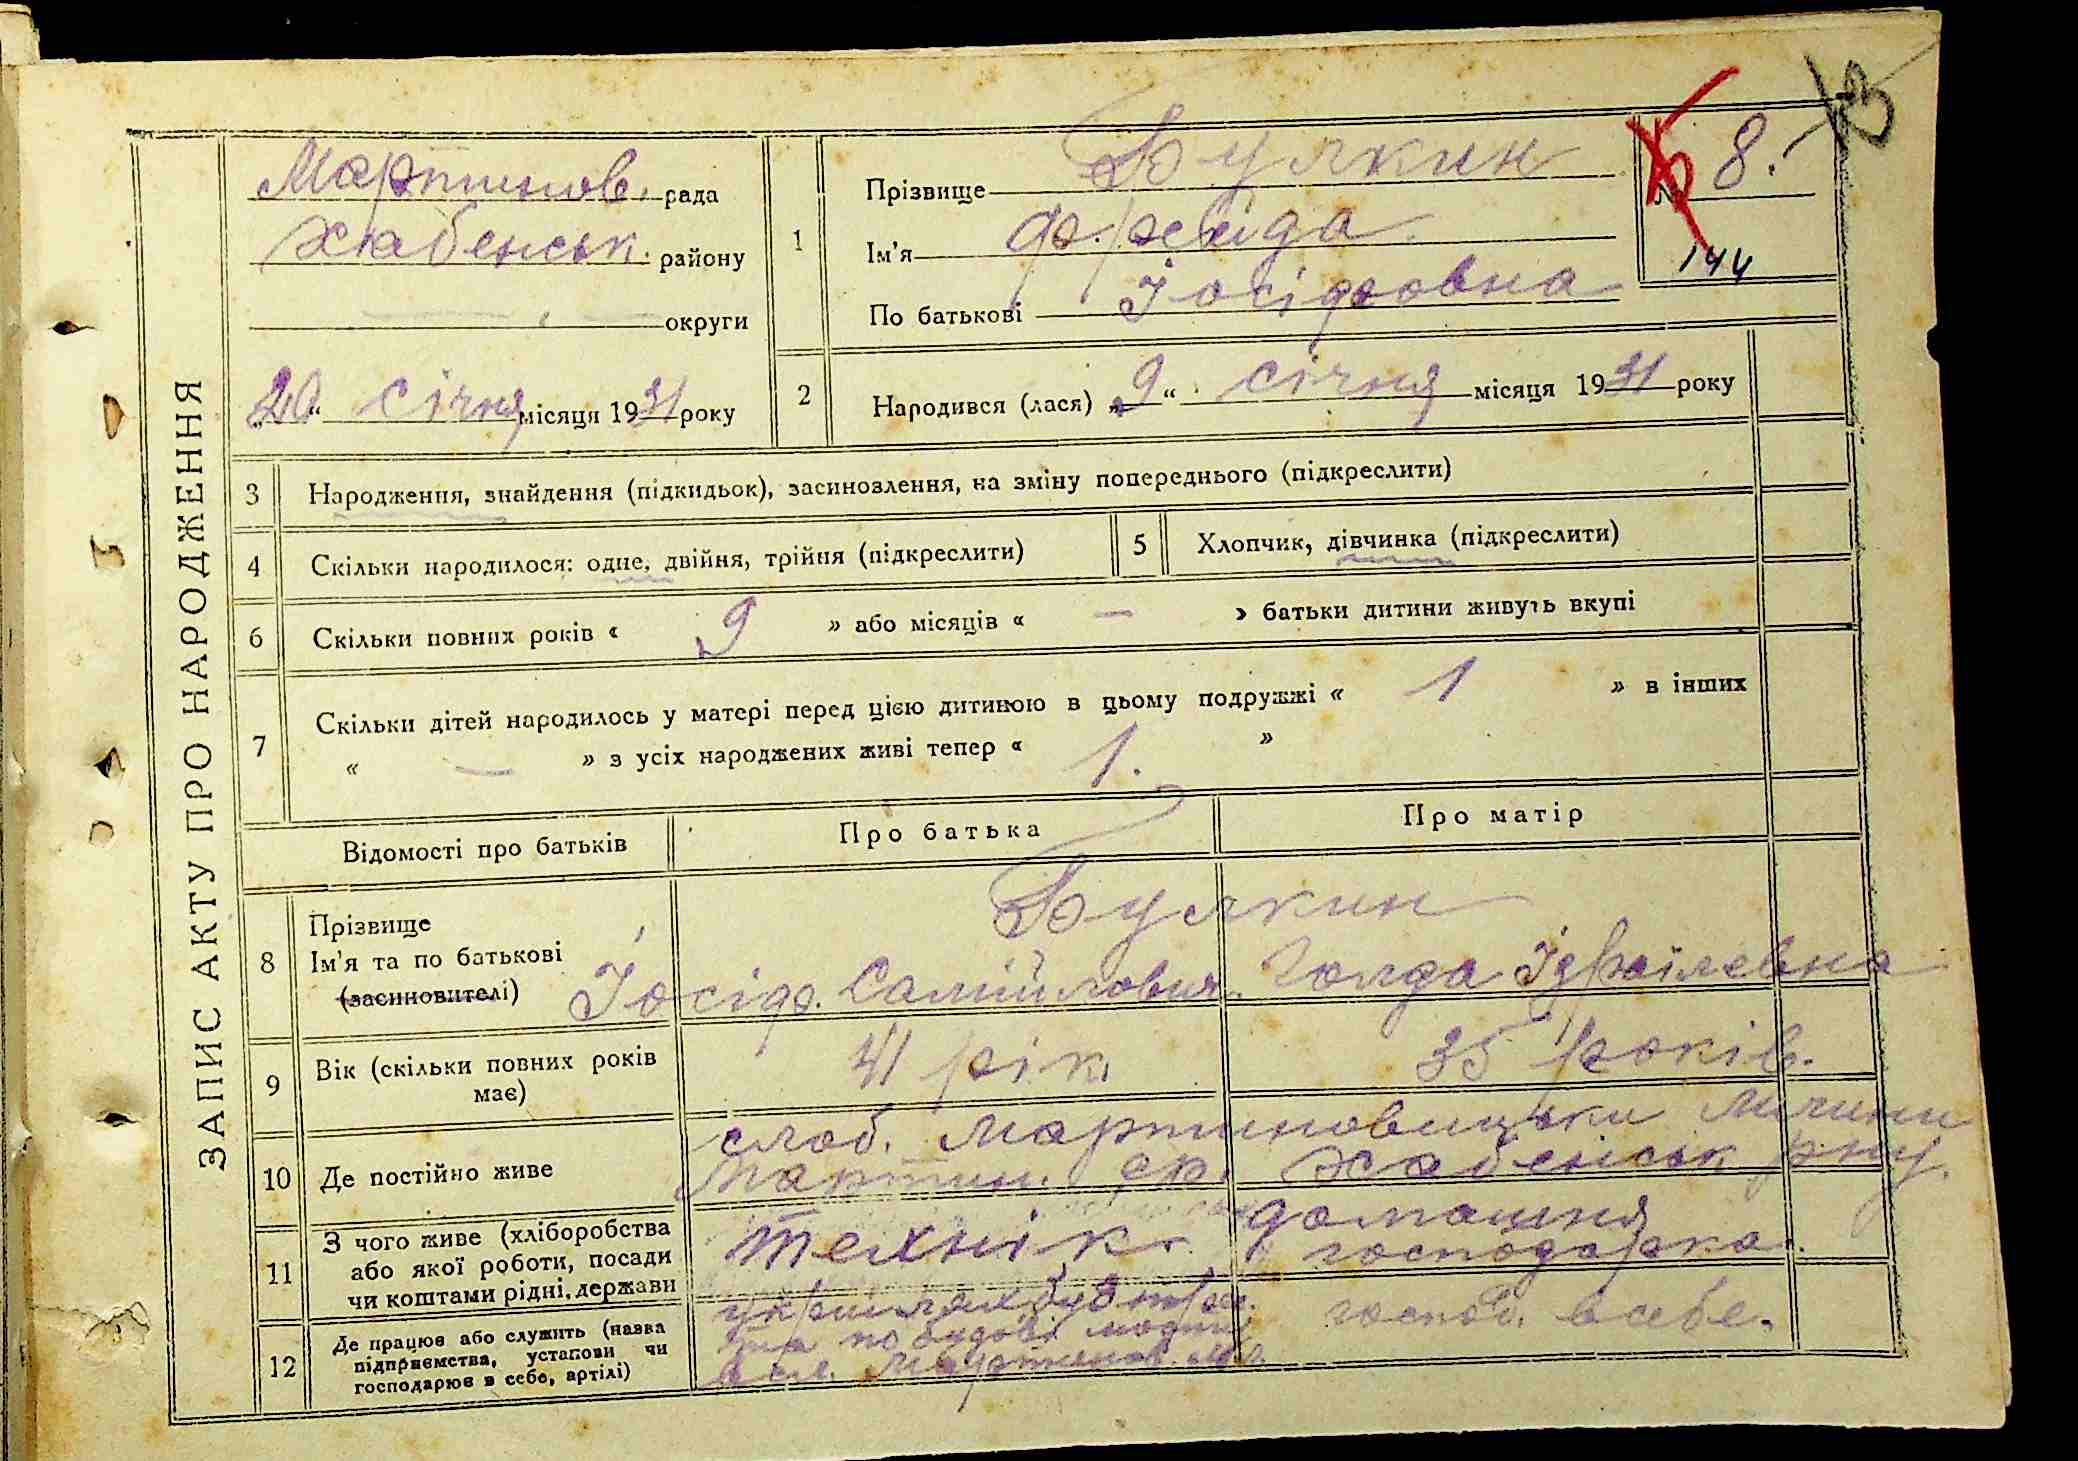 ЗАПИС АКТУ ПРО НАРОДЖЕННЯ
Мартинов. рада
Хабенськ. району
округи
20 „ “ січня місяця 1931 року
1
Прізвище Булкин
Ім'я Фрейда
По батькові Іосіфовна
№ 8.
144
2
Народився (лася) „9“ січня місяця 1931 року
3 Народження, знайдення (підкидьок), засиновлення, на зміну попереднього (підкреслити)
4 Скільки народилося: одне, двійня, трійня (підкреслити)
5 Хлопчик, дівчинка (підкреслити)
6 Скільки повних років « 9 » або місяців « — » батьки дитини живуть вкупі
7 Скільки дітей народилось у матері перед цією дитиною в цьому подружжі « 1 » в інших
« — » з усіх народжених живі тепер « 1. »
Відомості про батьків
Про батька
Про матір
8 Прізвище
Ім'я та по батькові
(засиновителі)
Булкин
Іосіф. Самійлович.
Голда Ізраїлевна
9 Вік (скільки повних років
має)
41 рік
35 років.
10 Де постійно живе
слоб. Мартиновицьки
Мартин. с/р. Хабенськ р-ну.
11 З чого живе (хліборобства
або якої роботи, посади
чи коштами рідні, держави
Технік
домашня
господарка.
12 Де працює або служить (назва
підприємства, установи чи
господарює в себе, артілі)
по будові
в сл. Мартинов.
господ. в себе.